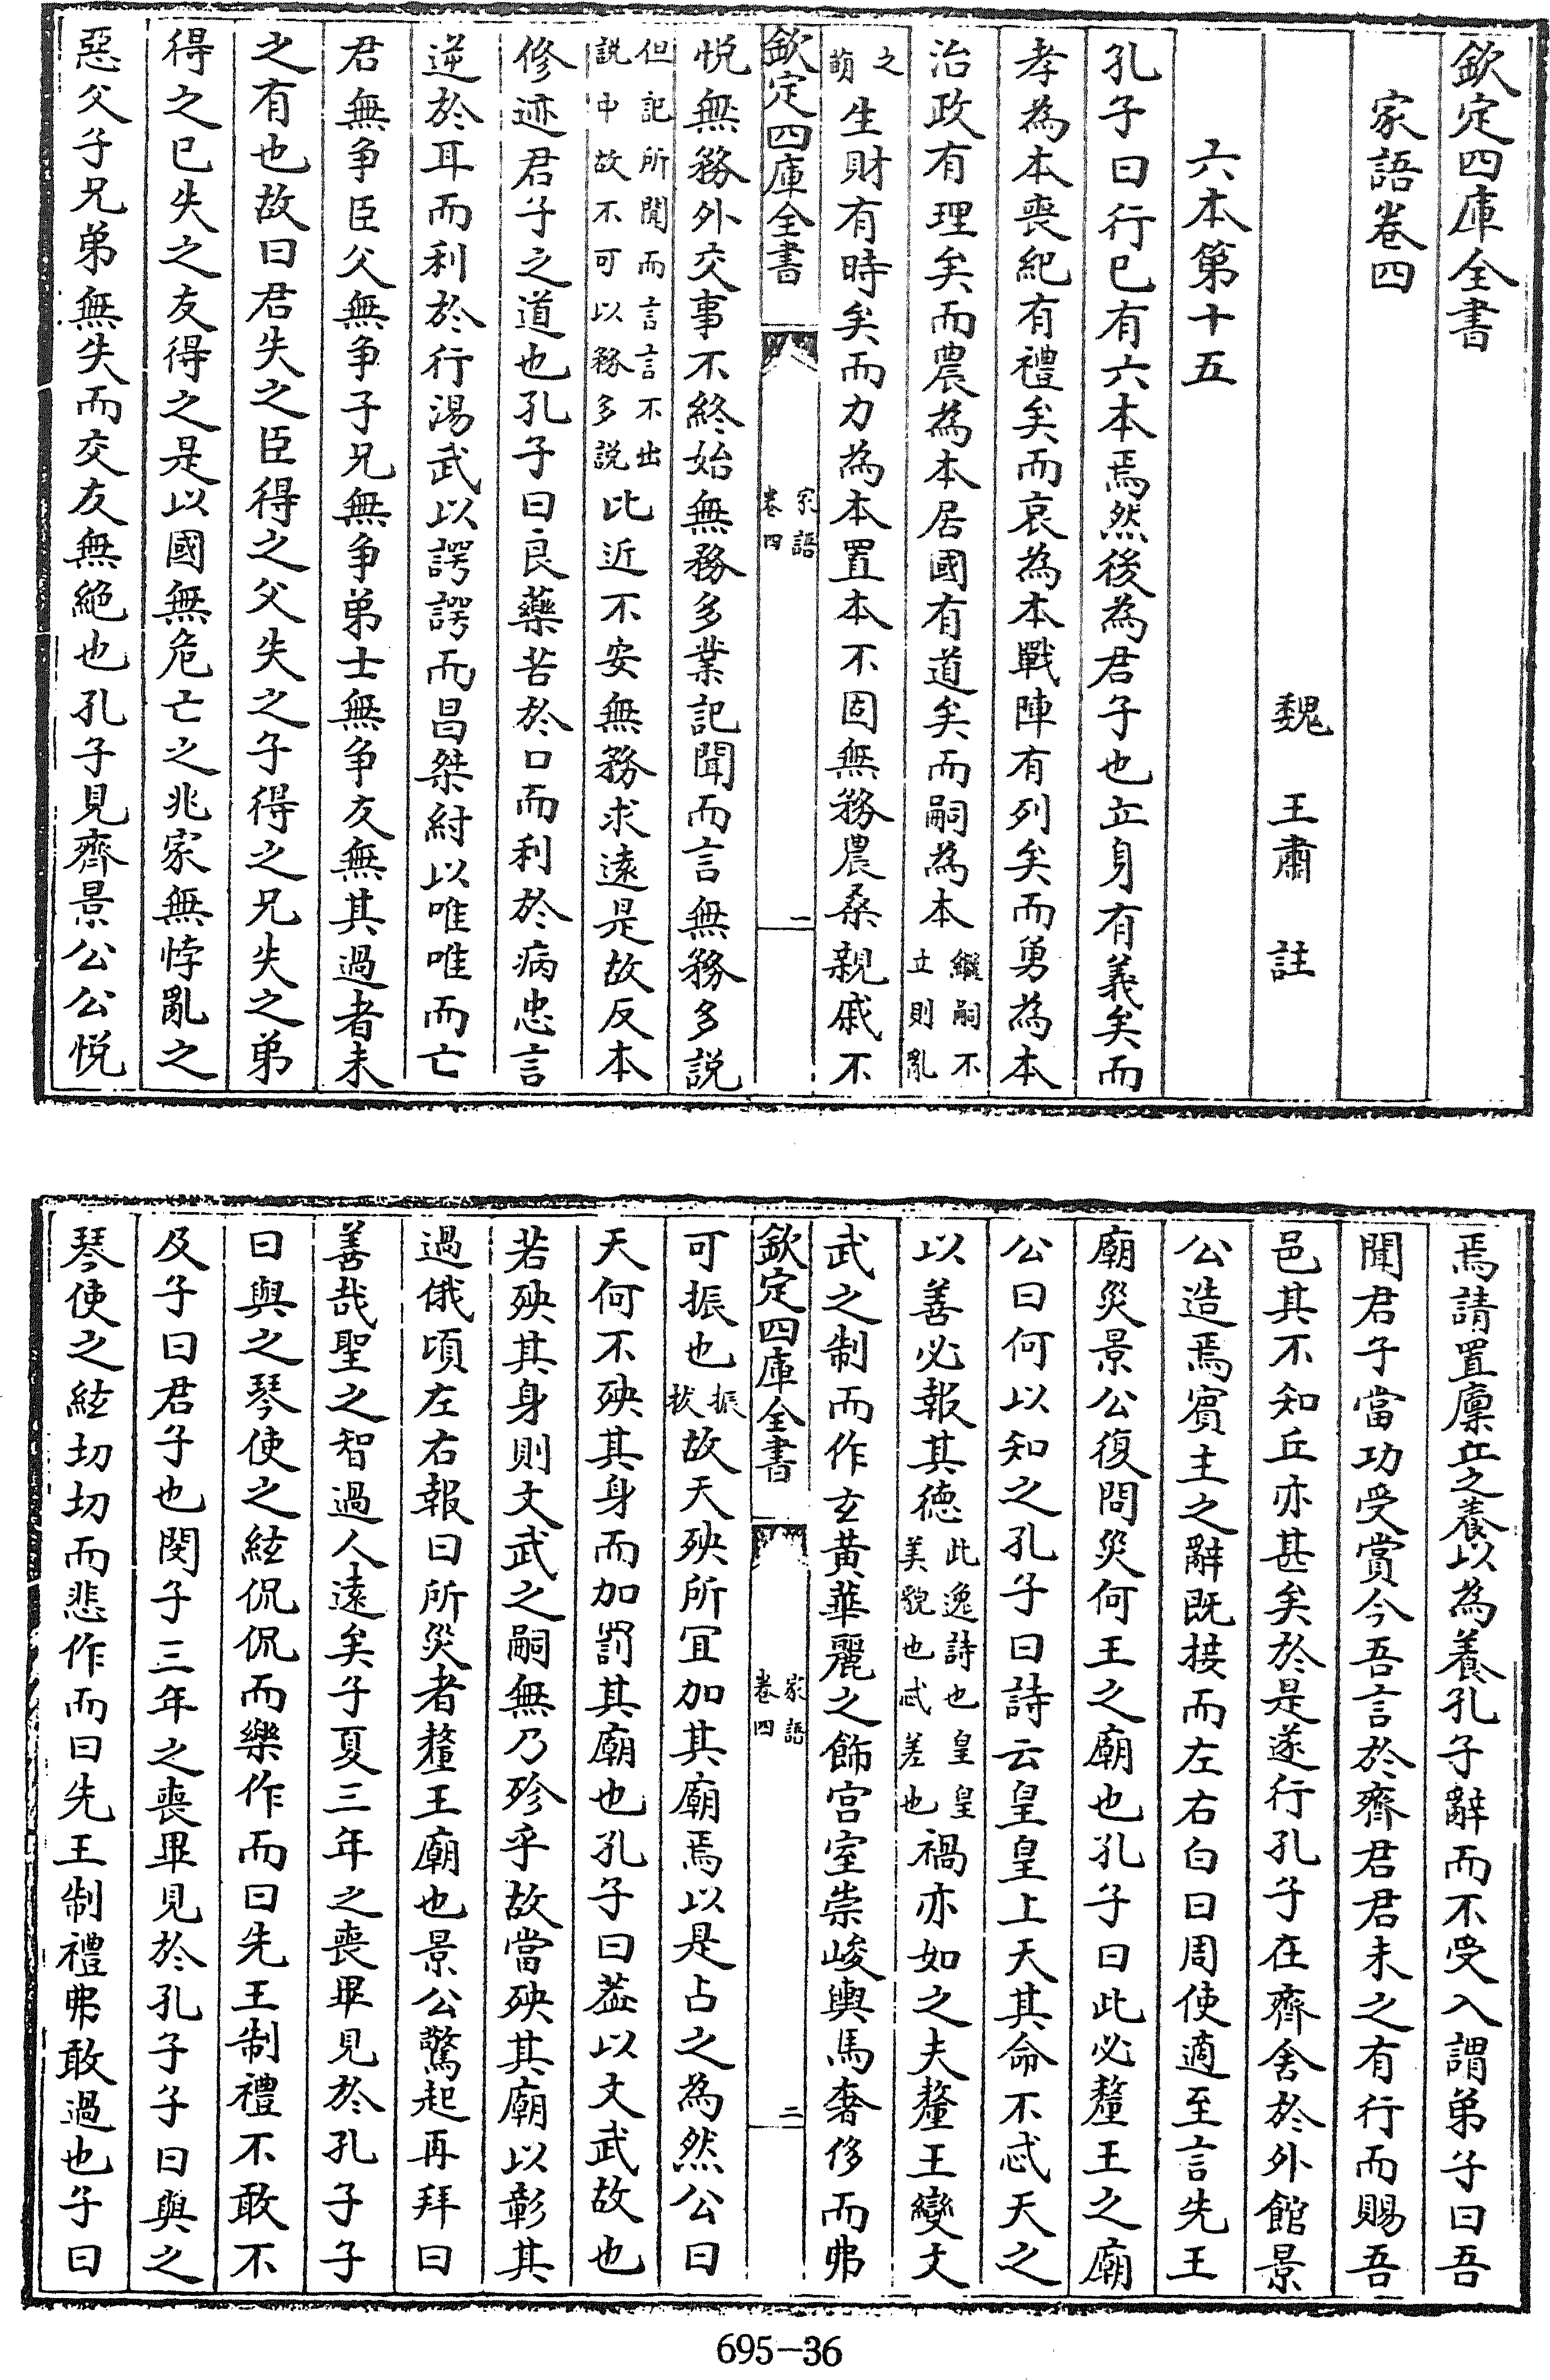 欽定四庫全書
家語卷四
魏 王肅 註
六本第十五
孔子曰行已有六本焉然後為君子也立身有義矣而
孝為本喪紀有禮矣而哀為本戰陣有列矣而勇為本
治政有理矣而農為本居國有道矣而嗣為本繼嗣不立則亂
之萌生財有時矣而力為本置本不固無務農桑親戚不
欽定四庫全書 家語卷四 一
悅無務外交事不終始無務多業記聞而言無務多說
但記所聞而言言不出說中故不可以務多說比近不安無務求遠是故反本
修迹君子之道也孔子曰良藥苦於口而利於病忠言
逆於耳而利於行湯武以諤諤而昌桀紂以唯唯而亡
君無争臣父無争子兄無争弟士無争友無其過者未
之有也故曰君失之臣得之父失之子得之兄失之弟
得之已失之友得之是以國無危亡之兆家無悖亂之
惡父子兄弟無失而交友無絶也孔子見齊景公公悅
焉請置廩丘之養以為養孔子辭而不受入謂弟子曰吾
聞君子當功受賞今吾言於齊君君未之有行而賜吾
邑其不知丘亦甚矣於是遂行孔子在齊舍於外館景
公造焉賓主之辭既接而左右白曰周使適至言先王
廟災景公復問災何王之廟也孔子曰此必釐王之廟
公曰何以知之孔子曰詩云皇皇上天其命不忒天之
以善必報其德此逸詩也皇皇美貌也忒差也禍亦如之夫釐王變文
武之制而作玄黃華麗之飾宮室崇峻輿馬奢侈而弗
欽定四庫全書 家語卷四 二
可振也振拔故天殃所宜加其廟焉以是占之為然公曰
天何不殃其身而加罰其廟也孔子曰葢以文武故也
若殃其身則文武之嗣無乃殄乎故當殃其廟以彰其
過俄頃左右報曰所災者釐王廟也景公驚起再拜曰
善哉聖之智過人遠矣子夏三年之喪畢見於孔子子
曰與之琴使之絃侃侃而樂作而曰先王制禮不敢不
及子曰君子也閔子三年之喪畢見於孔子子曰與之
琴使之絃切切而悲作而曰先王制禮弗敢過也子曰
695-36